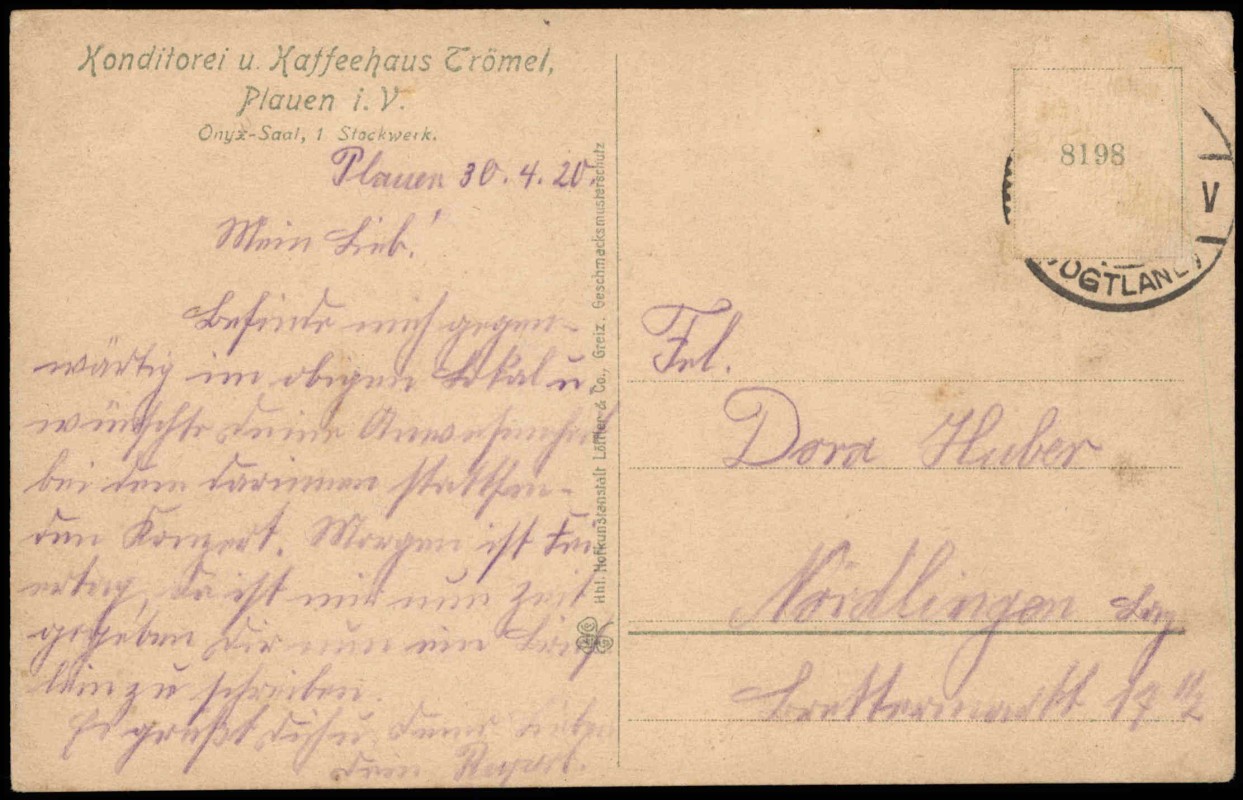 Konditorei u. Kaffeehaus Trömel,
Plauen i. V.
Onyx-Saal, 1 Stockwerk.
Plauen 30. 4. 20.
Mein Lieb!
Befinde mich gegen-
wärtig im obigen Lokal u
wünschte deine Anwesenheit
bei dem darinnen stattfin-
den Konzert. Morgen ist Fei
ertag, da ist mir nun Zeit
gegeben dir nun ein Brief
lein zu schreiben.
Es grüßt dich u. deine Lieben
dein
Hhl. Hofkunstanstalt Löffler & Co., Greiz. Geschmacksmusterschutz
8198
VOGTLAND
V
Frl.
Dora Huber
Nördlingen Bay
Brettermarkt 17